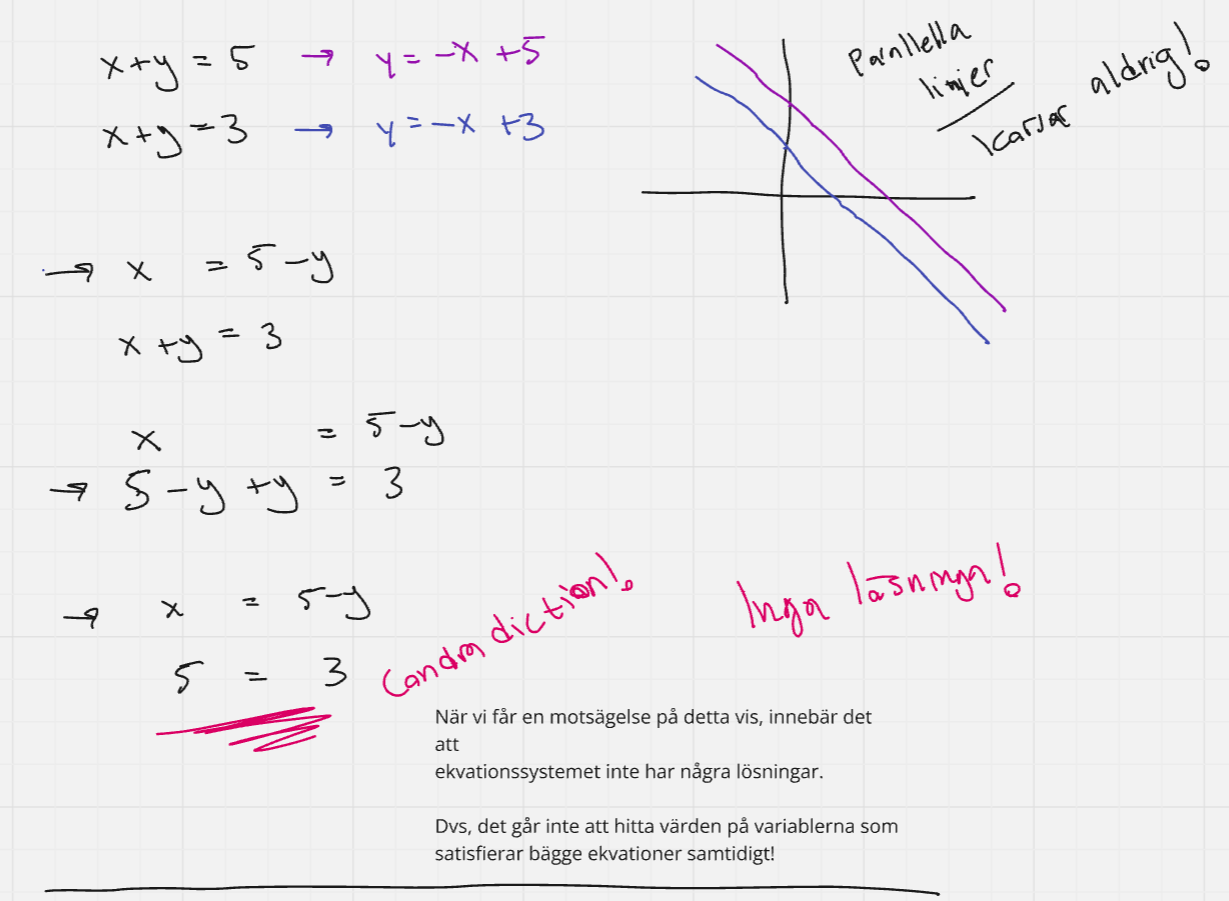 x+y = 5 → y = -x +5
x+y = 3 → y = -x +3
Parallella
linjer
korsar aldrig!
→ x = 5-y
x+y = 3
x = 5-y
→ 5-y+y = 3
→ x = 5-y
5 = 3
Contradiction!
Inga lösningar!
När vi får en motsägelse på detta vis, innebär det
att
ekvationssystemet inte har några lösningar.
Dvs, det går inte att hitta värden på variablerna som
satisfierar bägge ekvationer samtidigt!